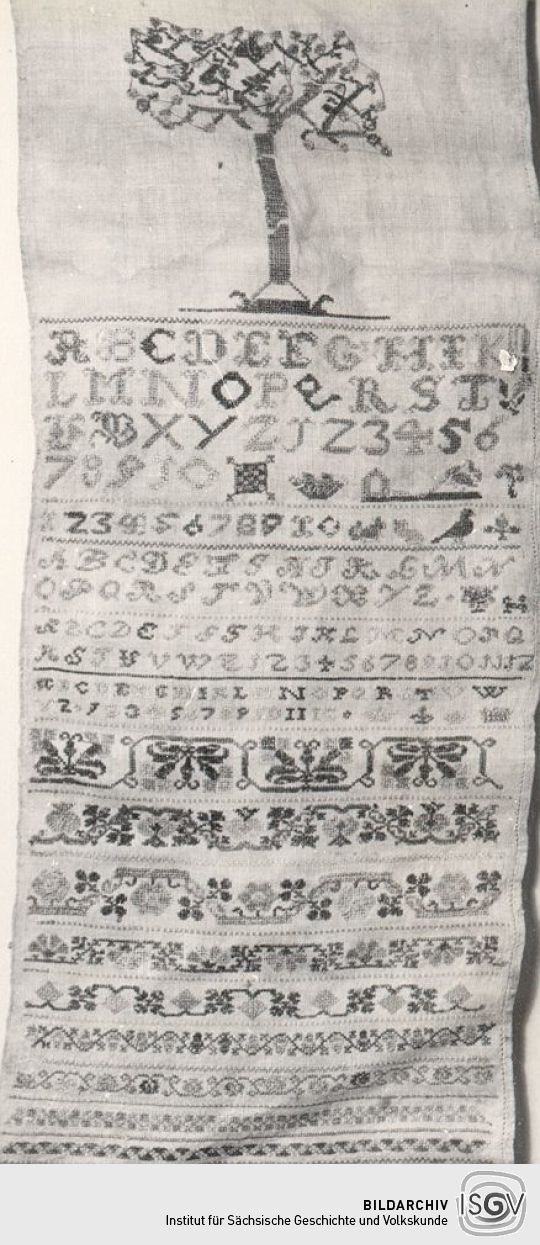 A B C D E F G H I K
L M N O P Q R S T V
U W X Y Z 1 2 3 4 5 6
7 8 9 1 0
1 2 3 4 5 6 7 8 9 1 0
A B C D E F G H I K L M N
O P Q R S T V W X Y Z
A B C D E F G H I K L M N O P Q
R S T U V W Z 1 2 3 4 5 6 7 8 9 10 11 12
C D E I K L N O P R T W
5 7 8 9 11
BILDARCHIV
Institut für Sächsische Geschichte und Volkskunde
ISGV